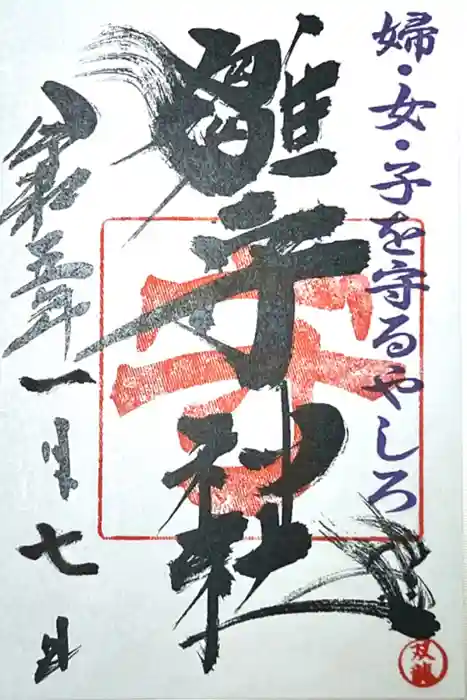 婦・女・子を守るやしろ
雛守社
令和五年一月七日